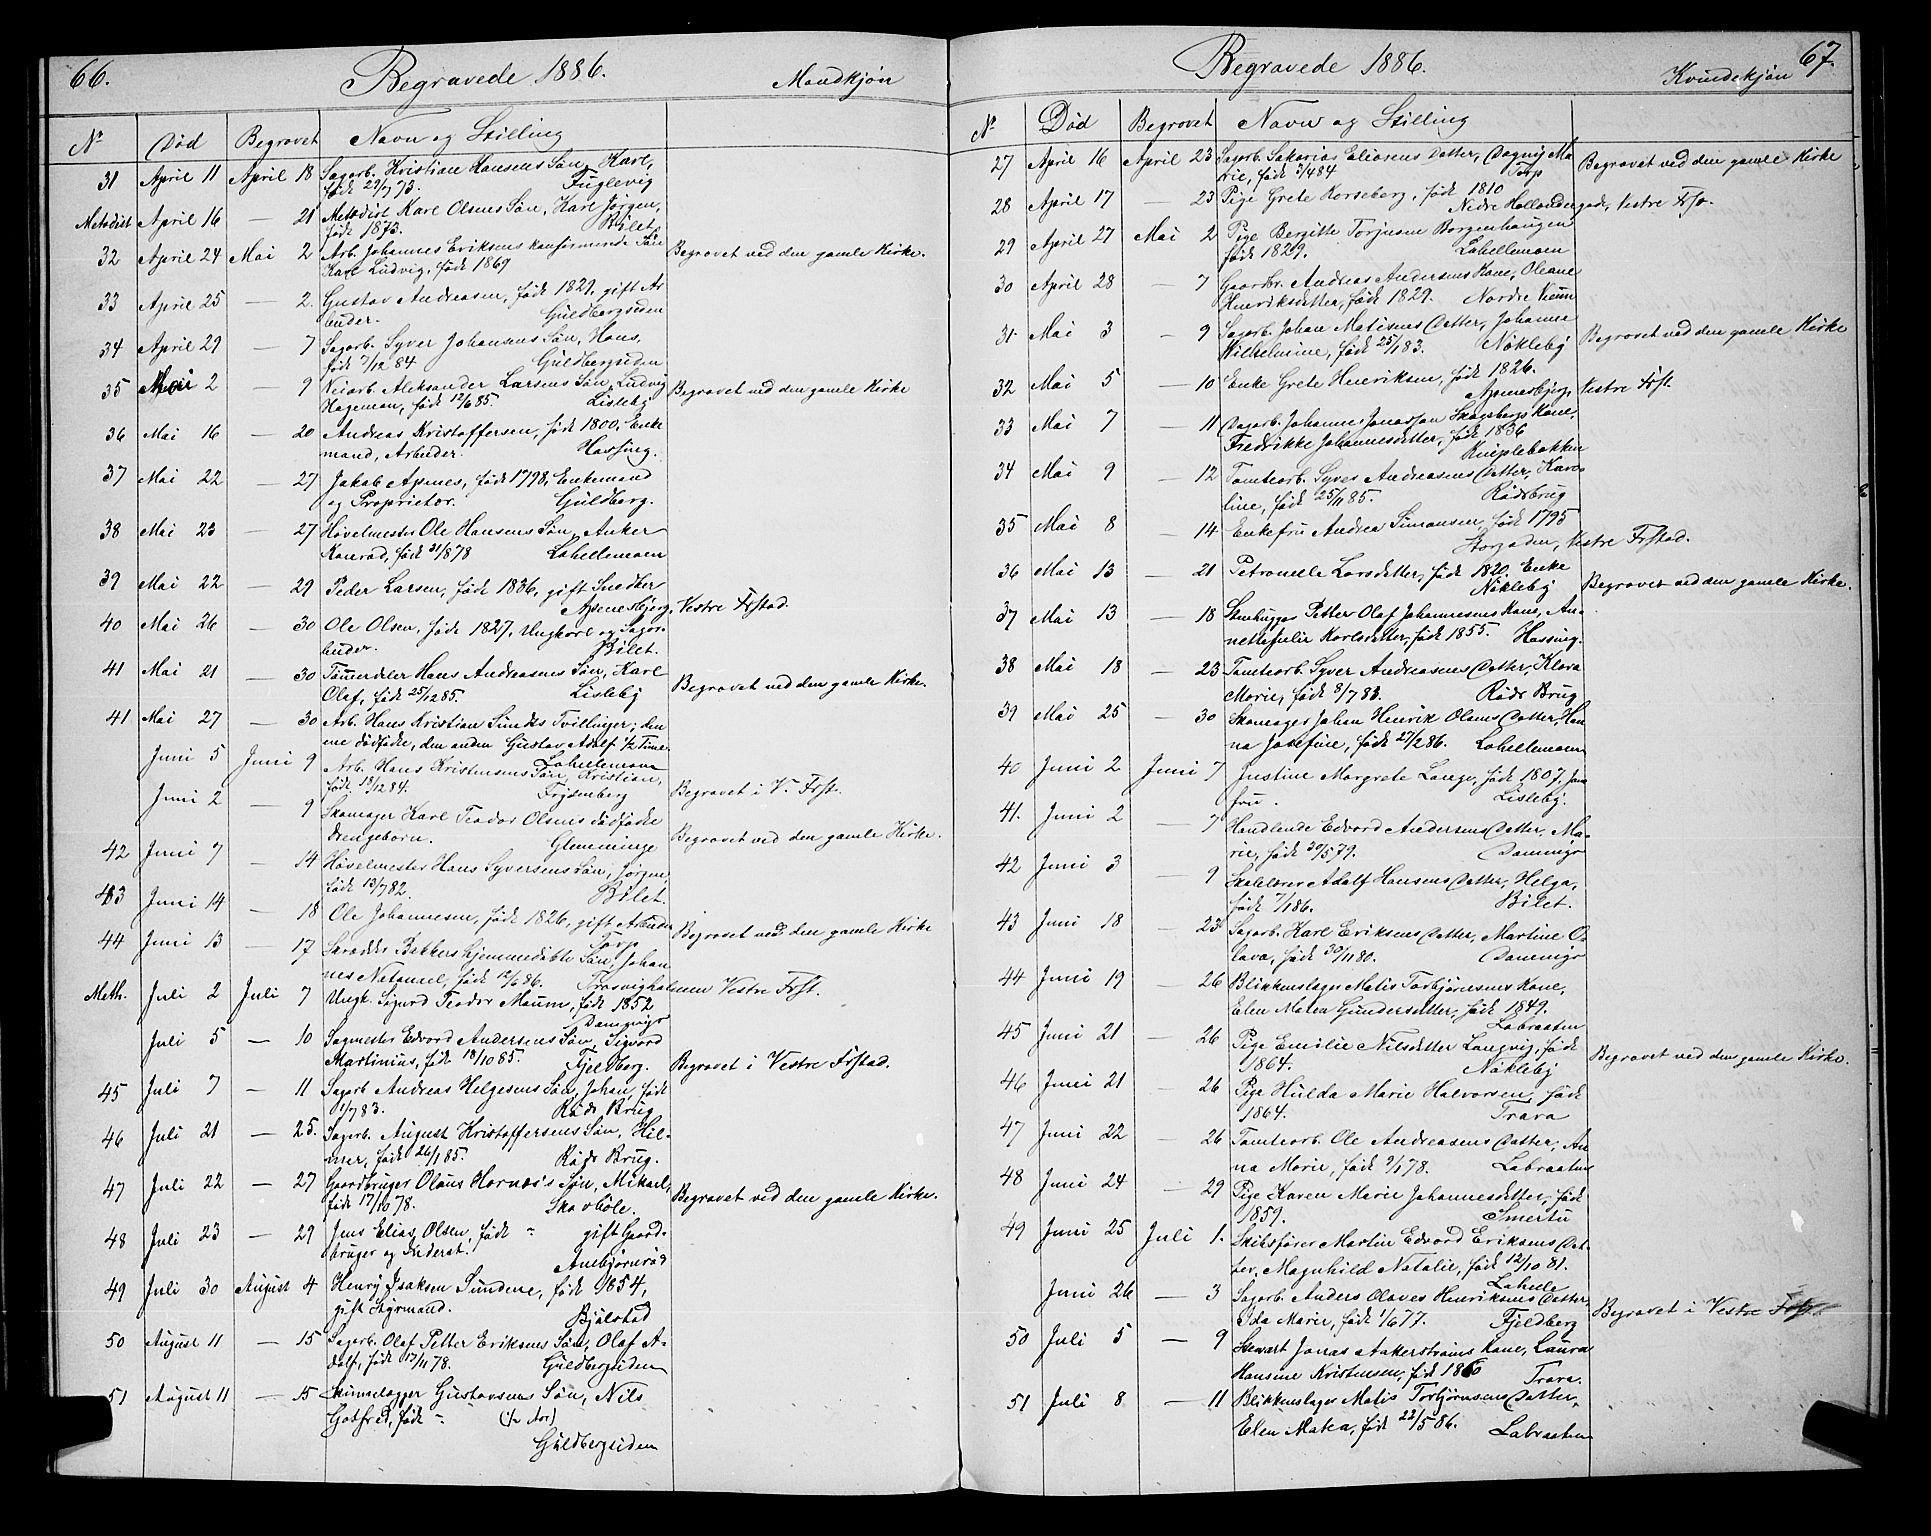 66.
Begravede 1886.
Mandkjøn
No Død Begravet Navn og Stilling
31 April 11 April 18 Sagarb. Kristian Hansens Søn, Karl,
født 22/1 73. Fuglevig
Metodist April 16 — 21 Metodist Karl Olsens Søn, Karl Jørgen,
født 1873. Bilet.
32 April 24 Mai 2 Arb. Johannes Eriksens konfirmerede Søn Begravet ved den gamle Kirke.
Karl Ludvig, født 1869
33 April 25 — 2. Gustav Andreasen, født 1821, gift Ar
beider. Guldbergsiden
34 April 29 — 7 Sagarb. Syver Johansens Søn, Hans,
født 7/12 84 Guldbergsiden
35 Mai 2 — 9 Veiarb. Aleksander Larsens Søn, Ludvig Begravet ved den gamle Kirke
Hageman, født 12/6 85. Lisleby
36 Mai 16 — 20 Andreas Kristoffersen, født 1800, Enke
mand, Arbeider. Hassing.
37 Mai 22 — 27 Jakob Apenes, født 1798, Enkemand
og Proprietær. Guldberg.
38 Mai 23 — 27 Høvelmester Ole Hansens Søn, Anker
Konrad, født 31/8 78 Labellemoen
39 Mai 22 — 29 Peder Larsen, født 1836, gift Snedker
Apenesbjerg, Vestre Frstad.
40 Mai 26 — 30 Ole Olsen, født 1827, Ungkarl og Sagar-
beider. Bilet.
41 Mai 21 — 30 Tømerdeler Hans Andreasens Søn, Karl
Olaf, født 25/12 85. Lisleby Begravet ved den gamle Kirke.
41 Mai 27 — 30 Arb. Hans Kristian Sundts Tvillinger; den
ene dødfødt, den anden Gustav Adolf 1/2 Time.
Labellemoen
Juni 5 Juni 9 Arb. Hans Kristensens Søn, Kristian,
født 13/12 84. Frydenberg Begravet i V. Frst.
Juni 2 — 9 Skomager Karl Teodor Olsens dødfødte
Drengebarn. Glemminge Begravet ved den gamle Kirke.
42 Juni 7 — 14 Høvelmester Hans Syversens Søn, Jørgen,
født 13/7 82. Bilet.
43 Juni 14 — 18 Ole Johannesen, født 1826, gift Arbeider
Torp Begravet ved den gamle Kirke
44 Juni 13 — 17 Bakkers hjemmedøbte Søn, Johan
nes Natanael, født 12/6 86. Trosvigholmen Vestre Frst.
Meth. Juli 2 Juli 7 Ungk. Sigurd Teodor Maum, født 1852
Damvigs
Juli 5 — 10 Sagmester Edvard Andersens Søn, Sigvard
Martinius, født 18/10 85. Fjeldberg. Begravet i Vestre Frstad.
45 Juli 7 — 11 Sagarb Andreas Helgesens Søn, Johan, født
1/7 83. Råds Brug
46 Juli 21 — 25. Sagarb. August Kristoffersens Søn, Hil-
mer, født 26/1 85. Råds Brug.
47 Juli 22 — 27 Gaardbruger Olaus Hornæs's Søn, Mikael,
født 17/10 78. Skovbøle. Begravet ved den gamle Kirke.
48 Juli 23 — 29 Jens Elias Olsen, født — gift Gaard-
bruger og Føderst.
Ambjørnrød
49 Juli 30 August 4 Henry Isaksen Sundene, født 1854,
gift Styrmand. Bjølstad
50 August 11 — 15 Sagarb. Olaf Petter Eriksens Søn, Olaf A-
dolf, født 13/11 78. Guldbergsiden
51 August 11 — 15 Gustavsens Søn, Nils
Gotfred, født — (1/2 Aar)
Guldbergsiden
67.
Begravede 1886.
Kvindekjøn
No Død Begravet Navn og Stilling
27 April 16 April 23 Sagarb. Sakarias Eliasens Datter, Dagny Ma Begravet ved den gamle Kirke
rie, født 1/4 84 Torp
28 April 17 — 23 Pige Grete Korseberg, født 1810
Nedre Hollændergade, Vestre Frst.
29 April 27 Mai 2 Pige Bergitte Torjusen Borgenhaugen
født 1829. Labellemoen
30 April 28 — 7 Gaardbr. Andreas Andersens Kone, Oleane
Henriksdatter, født 1829. Nordre Veum
31 Mai 3 — 9 Sagarb. Johan Matisens Datter, Johanne Begravet ved den gamle Kirke
Wilhelmine, født 25/1 83. Nøkleby
32 Mai 5 — 10 Enke Grete Henriksen, født 1826.
Apenesbjerg, Vestre Frst.
33 Mai 7 — 11 Dagarb. Johannes Jonassen Skogsbergs Kone,
Fredrikke Johannesdatter, født 1836
Kniplebakken
34 Mai 9 — 12 Tomtearb. Syver Andreasens Datter, Karo
line, født 25/11 85. Rådsbrug
35 Mai 8 — 14 Enkefru Andrea Simonsen, født 1795
Storgaden, Vestre Frstad.
36 Mai 13 — 21 Petronelle Larsdatter, født 1820. Enke
Nøkleby Begravet ved den gamle Kirke.
37 Mai 13 — 18 Stenhugger Petter Olaf Johannesens Kone, An-
nette Julie Karlsdatter, født 1855. Hassing.
38 Mai 18 — 23 Tomtearb. Syver Andreasens Datter, Klara
Marie, født 8/7 83. Råds Brug
39 Mai 25 — 30 Skomager Johan Henrik Olsens Datter, Han
na Josefine, født 27/2 86. Labellemoen
40 Juni 2 Juni 7 Justine Margrete Lange, født 1807, Jom
fru. Lisleby.
41. Juni 2 — 7 Handlende Edvard Andersens Datter, Ma-
rie, født 30/5 79. Damvigs
42 Juni 3 — 9 Skolelærer Adolf Hansens Datter, Helga,
født 7/1 86. Bilet.
43 Juni 18 — 23 Sagarb. Karl Eriksens Datter, Martine O-
lava, født 30/11 80. Damvigs
44 Juni 19 — 26 Blikkenslager Matis Torbjørnsens Kone,
Elen Matea Gundersdatter, født 1849.
Labraaten
45 Juni 21 — 26 Pige Emilie Nilsdatter Langvig, født
1864. Nøkleby Begravet ved den gamle Kirke.
46 Juni 21 — 26 Pige Hulda Marie Halvorsen, født
1864. Trara
47 Juni 22 — 26 Tomtearb. Ole Andreasens Datter, An
na Marie, født 9/1 78. Labraaten
48 Juni 24 — 29 Pige Karen Marie Johannesdatter, født
1859. Smertu
49 Juni 25 Juli 1. Skibsfører Martin Edvard Eriksens Dat-
ter, Magnhild Natalie, født 12/10 81.
Labelle
Juni 26 — 3 Sagarb. Anders Olaves Henriksens Datter,
Ida Marie, født 1/6 77. Fjeldberg Begravet i Vestre Frst
50 Juli 5 — 9 Stewart Jonas Aakerstrøms Kone, Laura
Hansine Kristensen, født 1860 Trara.
51 Juli 8 — 11 Blikkenslager Matis Torbjørnsens Datter,
Elen Matea, født 22/5 86. Labraaten